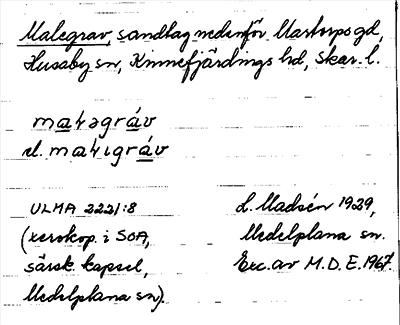 Malegrav, sandtag nedenför Martorps gd,
Husaby sn, Kinnefjärdings hd, Skar. l.
maɬəgráv
el. maɬıgráv
ULMA 2221:8
(xerokop. i SOA,
särsk. kapsel,
Medelplana sn).
L. Madsén 1929,
Medelplana sn.
Exc. av M.D.E. 1967.